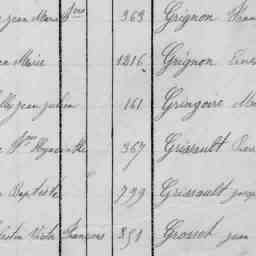 jean Marie fme 363 Grignon Fran
Marie 1216 Grignon
jean julien 161 Gringoire Ma
Vm Hyacinthe 367 Grissault Pierre
Baptiste 799 Grissault
Victor François 851 Grosset jean